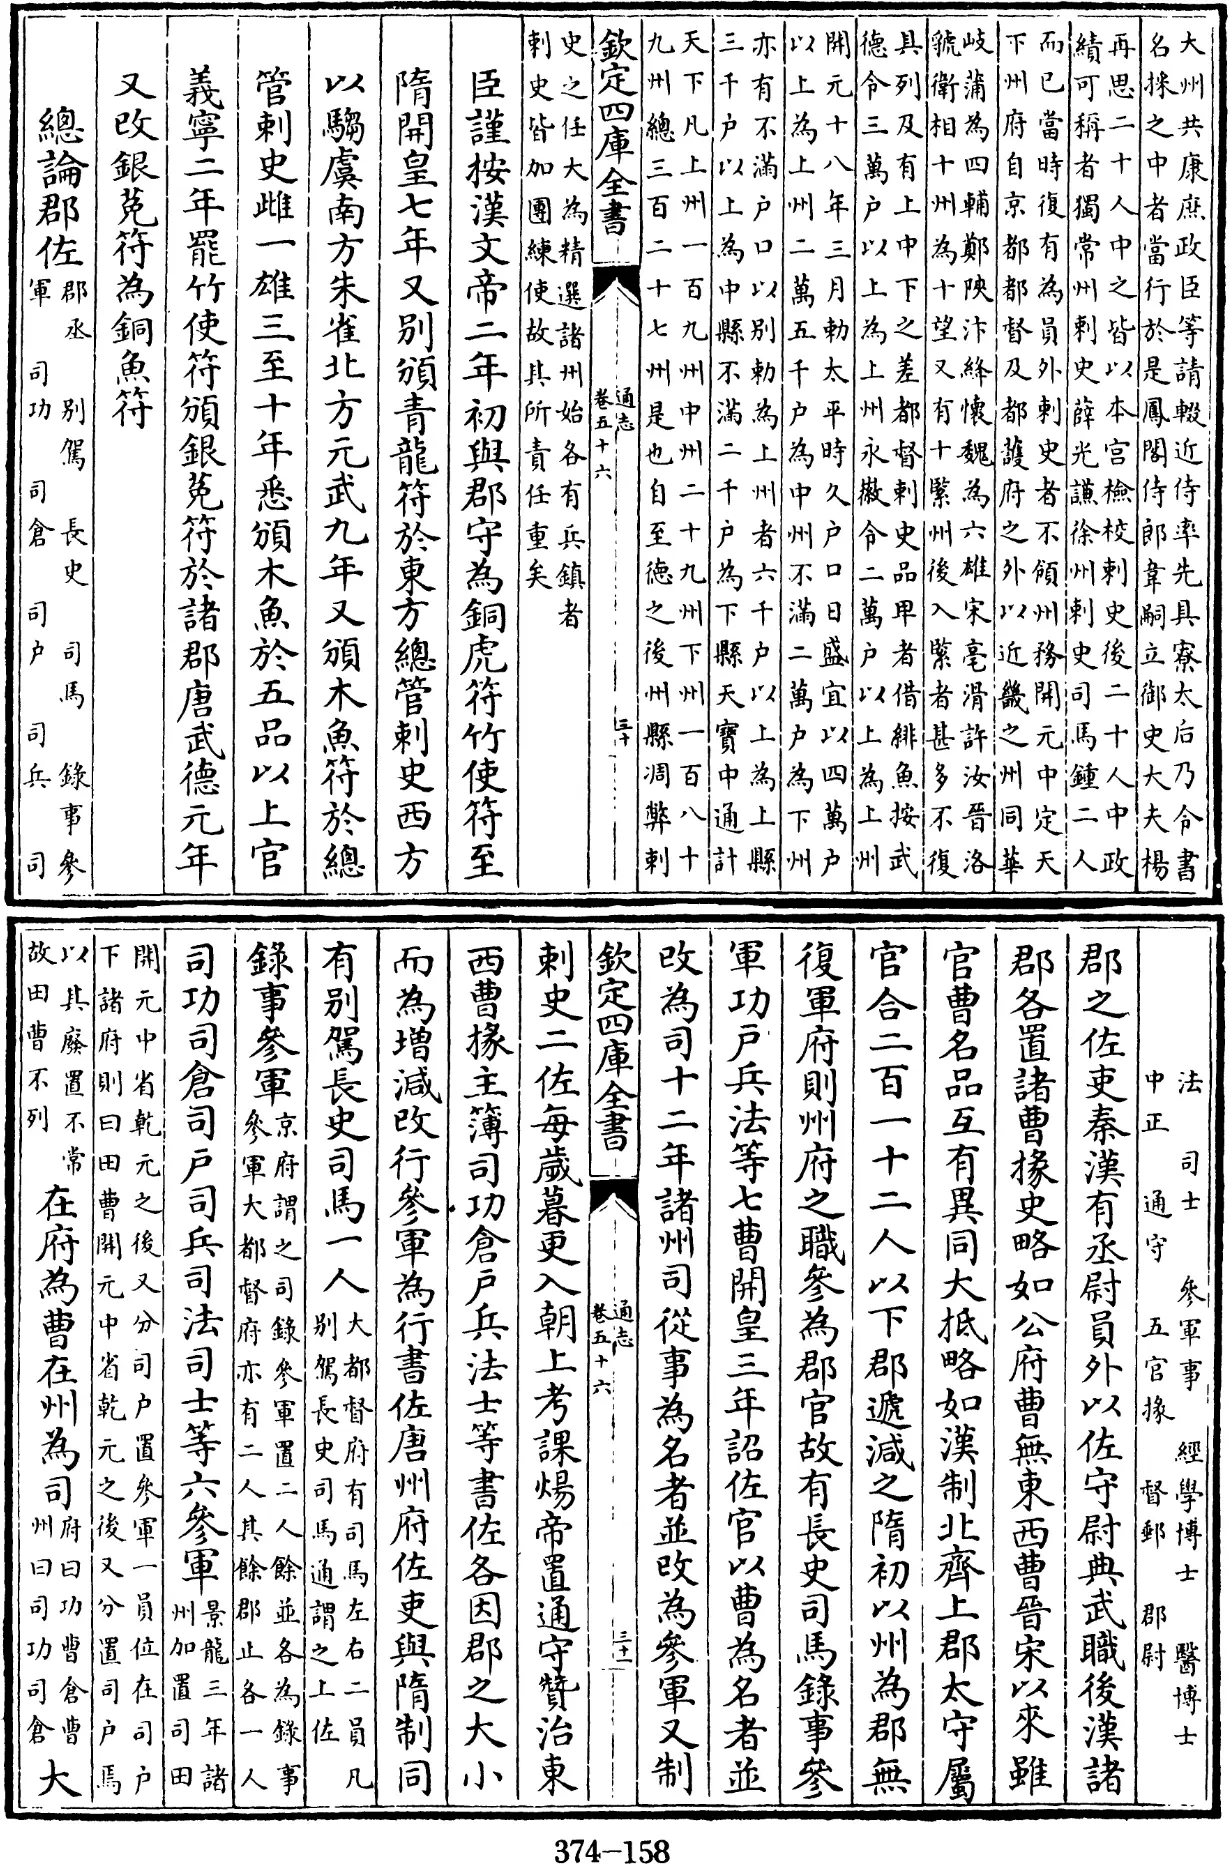 大州共康庶政臣等請輟近侍率先具寮太后乃令書
名探之中者當行於是鳳閣侍郎韋嗣立御史大夫楊
再思二十人中之皆以本官檢校刺史後二十人中政
績可稱者獨常州刺史薛光謙徐州刺史司馬鍾二人
而已當時復有為員外刺史者不領州務開元中定天
下州府自京都都督及都護府之外以近畿之州同華
岐蒲為四輔鄭陜汴絳懷魏為六雄宋亳滑許汝晉洛
虢衛相十州為十望又有十緊州後入緊者甚多不復
具列及有上中下之差都督刺史品卑者借緋魚按武
德令三萬户以上為上州永徽令二萬户以上為上州
開元十八年三月勅太平時久户口日盛宜以四萬户
以上為上州二萬五千户為中州不滿二萬户為下州
亦有不滿户口以别勅為上州者六千户以上為上縣
三千户以上為中縣不滿二千户為下縣天寶中通計
天下凡上州一百九州中州二十九州下州一百八十
九州總三百二十七州是也自至德之後州縣凋弊刺
欽定四庫全書
通志
卷五十六
三十
史之任大為精選諸州始各有兵鎮者
刺史皆加團練使故其所責任重矣
臣謹按漢文帝二年初與郡守為銅虎符竹使符至
隋開皇七年又别頒青龍符於東方總管刺史西方
以騶虞南方朱雀北方元武九年又頒木魚符於總
管刺史雌一雄三至十年悉頒木魚於五品以上官
義寧二年罷竹使符頒銀菟符於諸郡唐武德元年
又改銀菟符為銅魚符
總論郡佐
郡丞 别駕 長史 司馬 錄事參
軍 司功 司倉 司户 司兵 司
法 司士 參軍事 經學博士 醫博士
中正 通守 五官掾 督郵 郡尉
郡之佐吏秦漢有丞尉員外以佐守尉典武職後漢諸
郡各置諸曹掾史略如公府曹無東西曹晉宋以來雖
官曹名品互有異同大抵略如漢制北齊上郡太守屬
官合二百一十二人以下郡遞減之隋初以州為郡無
復軍府則州府之職參為郡官故有長史司馬錄事參
軍功户兵法等七曹開皇三年詔佐官以曹為名者並
改為司十二年諸州司從事為名者並改為參軍又制
欽定四庫全書
通志
卷五十六
三十一
刺史二佐每歲暮更入朝上考課煬帝置通守贊治東
西曹掾主簿司功倉户兵法士等書佐各因郡之大小
而為增減改行參軍為行書佐唐州府佐吏與隋制同
有别駕長史司馬一人
大都督府有司馬左右二員凡
别駕長史司馬通謂之上佐
錄事參軍
京府謂之司錄參軍置二人餘並各為錄事
參軍大都督府亦有二人其餘郡止各一人
司功司倉司户司兵司法司士等六參軍
景龍三年諸
州加置司田
開元中省乾元之後又分司户置參軍一員位在司户
下諸府則曰田曹開元中省乾元之後又分置司户馬
以其廢置不常
故田曹不列
在府為曹在州為司
府曰功曹倉曹
州曰司功司倉
大
374-158